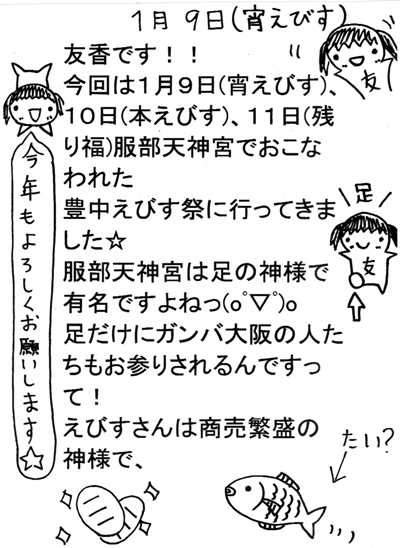 1月9日(宵えびす)
友香です！！
今回は１月９日(宵えびす)、
１０日(本えびす)、１１日(残
り福)服部天神宮でおこな
われた
豊中えびす祭に行ってきま
した☆
服部天神宮は足の神様で
有名ですよねっ(o゚▽゚)o
足だけにガンバ大阪の人た
ちもお参りされるんですっ
て！
えびすさんは商売繁盛の
神様で、
今年もよろしくお願いします☆
友
足
友
たい?